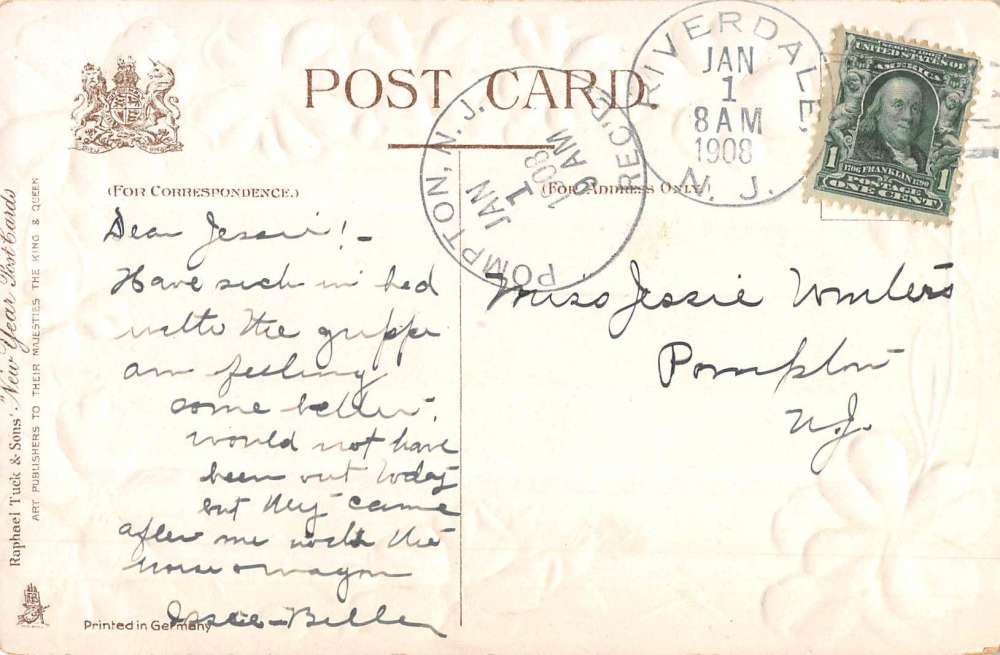 POST CARD.
(FOR CORRESPONDENCE.)
(FOR ADDRESS ONLY.)
RIVERDALE, N. J.
JAN
1
8 AM
1908
POMPTON, N. J.
JAN
1
1908
AM
REC'D.
SERIES 1902
UNITED STATES OF
AMERICA
1706 FRANKLIN 1790
POSTAGE
1 ONE CENT 1
Dear Jessie! –
Have sick in bed
with the grippe
am feeling
some better.
would not have
been out today
but they came
after me with the
horse & wagon
Belle
Miss Jessie Winters
Pompton
N.J.
Raphael Tuck & Sons' "New Year Post Cards
ART PUBLISHERS TO THEIR MAJESTIES THE KING & QUEEN
Printed in Germany